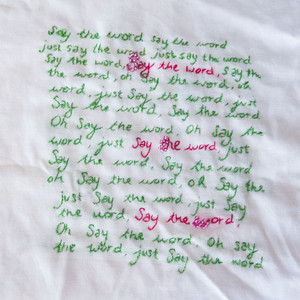 Say the word say the word
just say the word just say the word
Say the word, Say the word, Say the
the word, oh Say the word, oh
word, just Say the word, just
Say the word, Say the word
Oh Say the word, Oh Say the
word, just Say the word, just
Say the word, Say the word
oh Say the word, oh Say the
just Say the word, just Say
the word, Say the word,
Oh Say the word, Oh say
the word, just Say the word